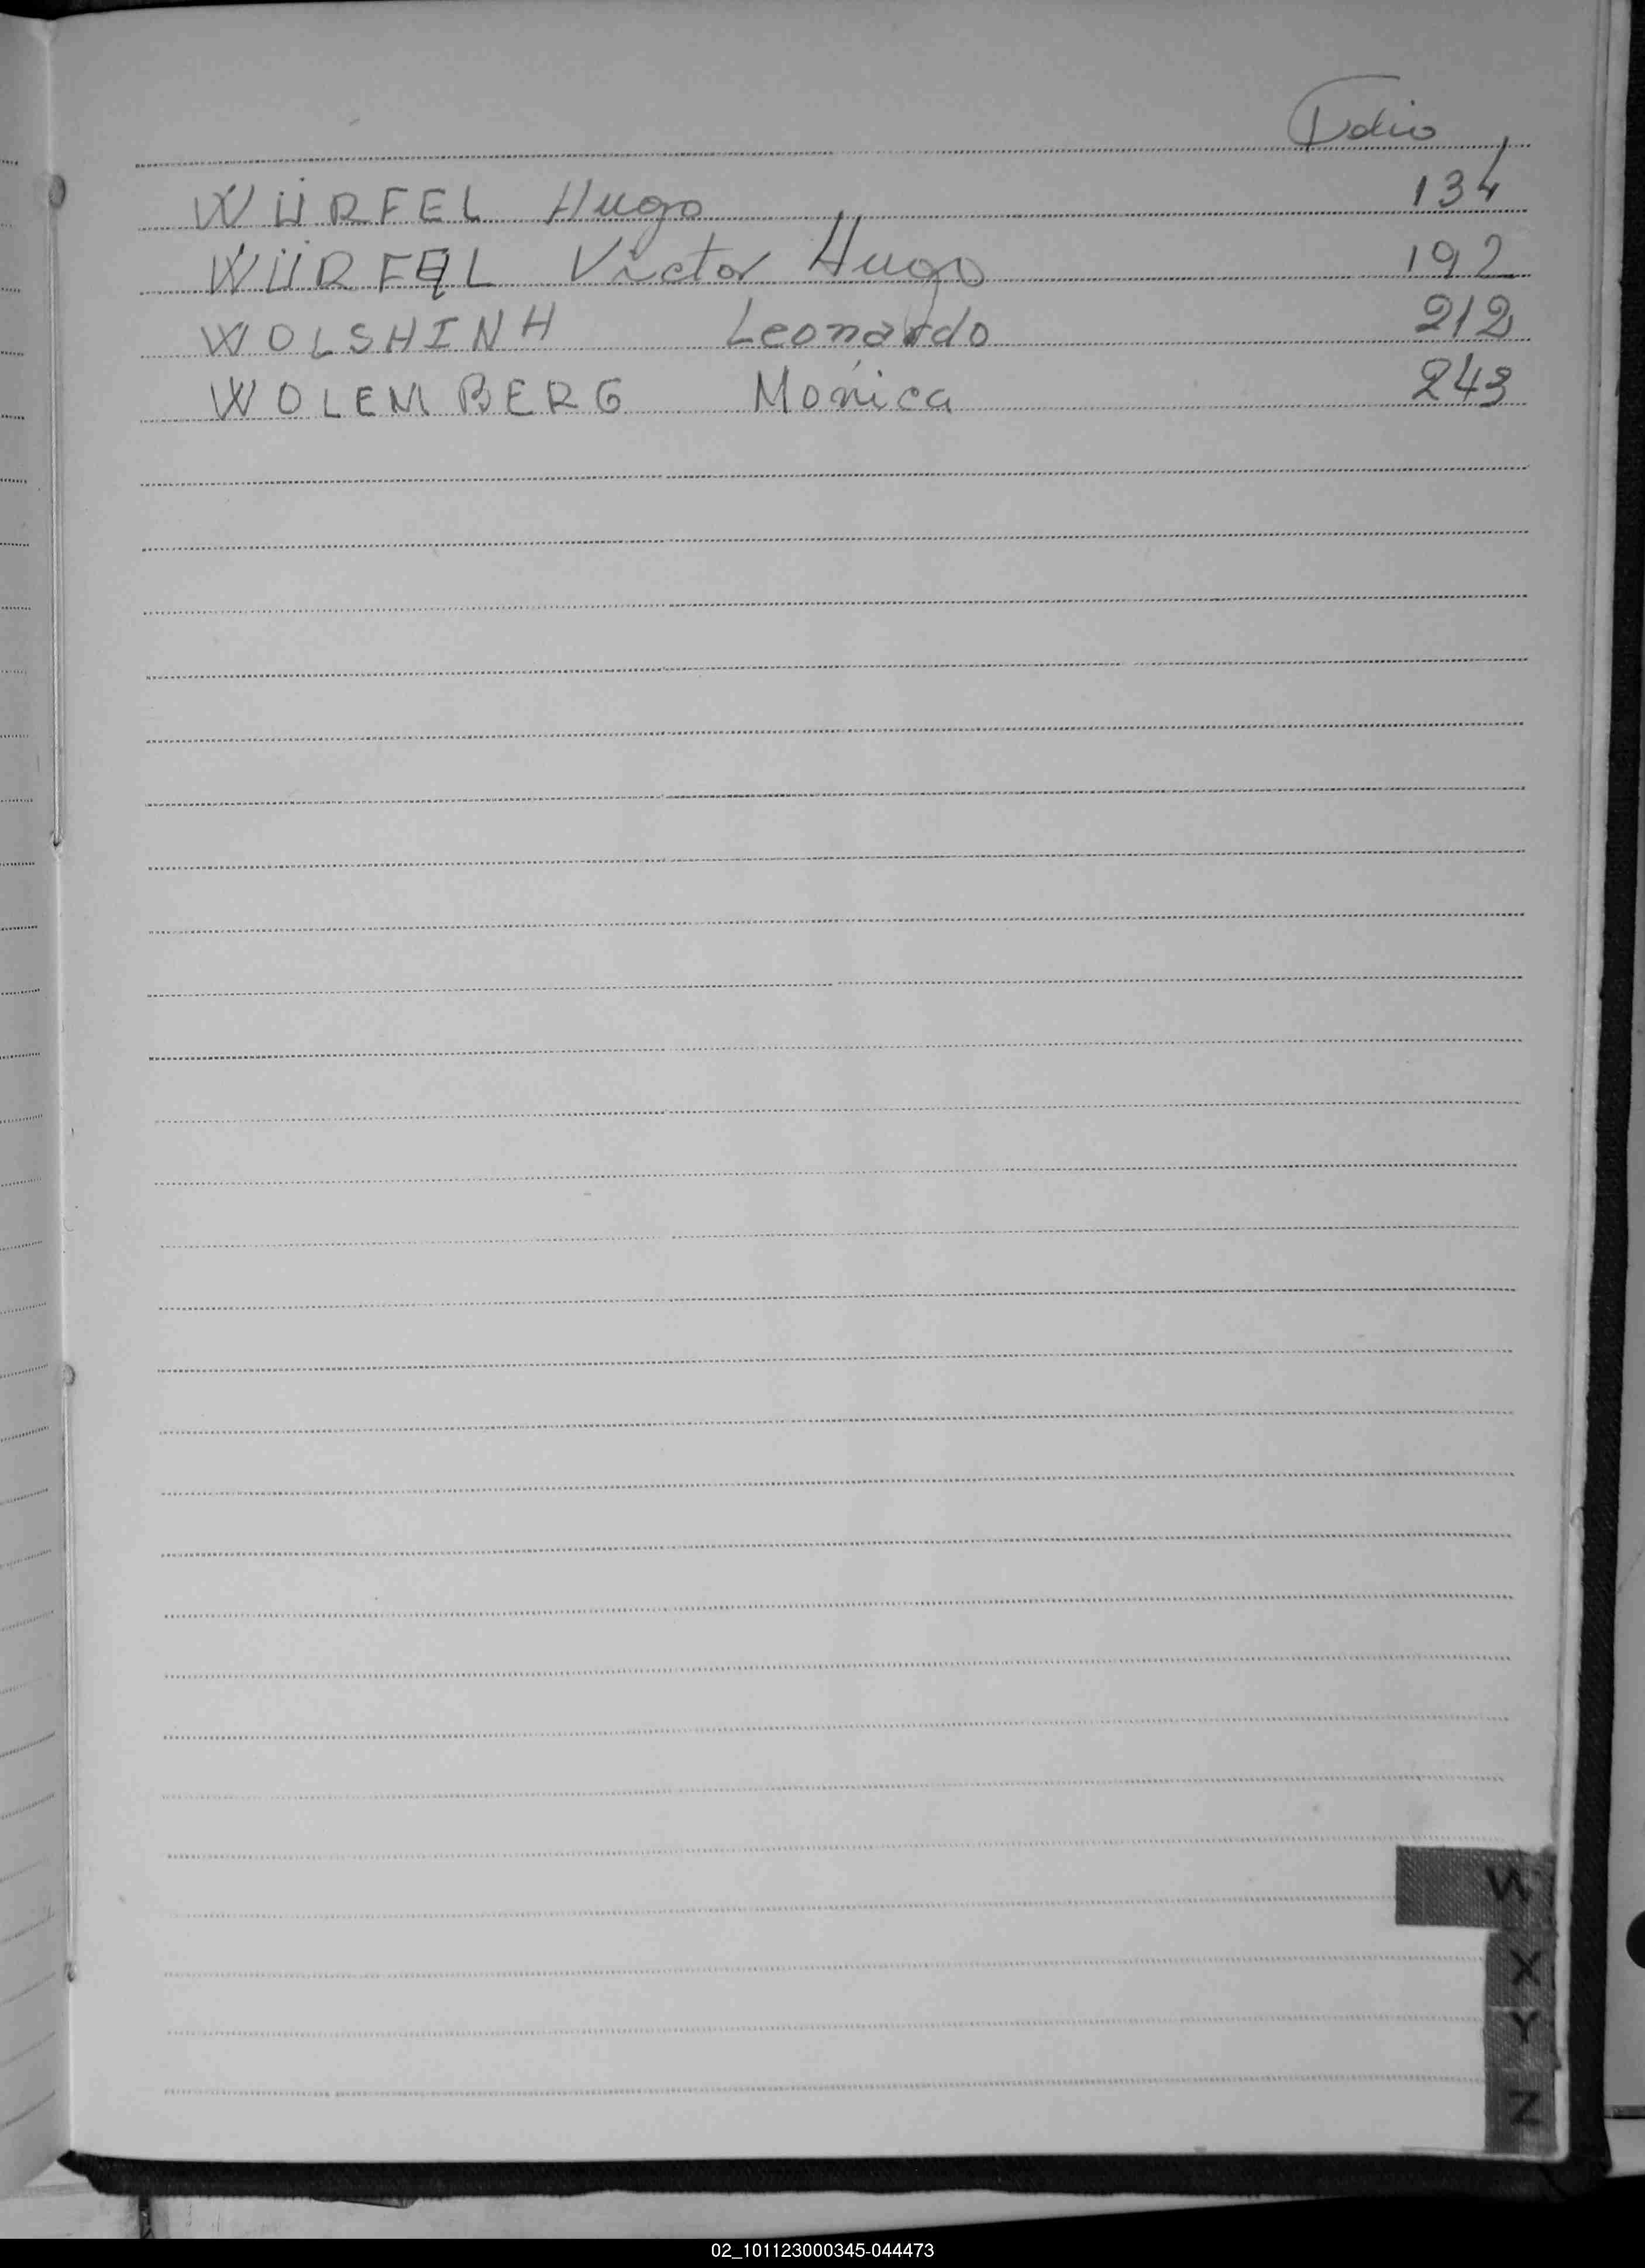 Folio
WÜRFEL Hugo 134
WÜRFEL Victor Hugo 192
WOLSHINH Leonardo 212
WOLEMBERG Mónica 243
W
X
Y
Z
02_101123000345-044473